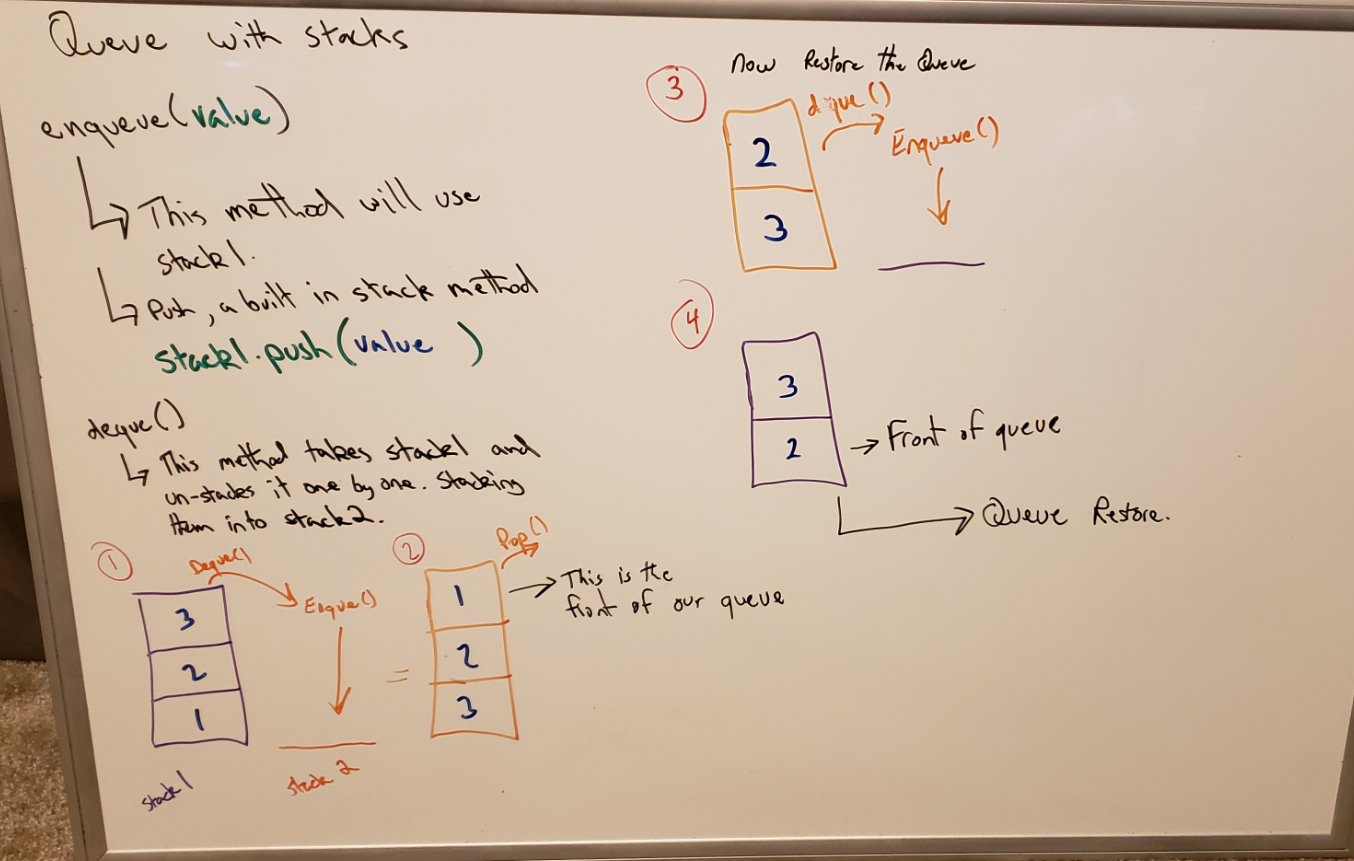 Queue with stacks
enqueue(value)
This method will use
stack1.
Push, a built in stack method
stack1.push(value )
deque()
This method takes stack1 and
un-stacks it one by one. Stacking
them into stack2.
1
Deque()
Enque()
3
2
1
stack1
stack 2
=
2
Pop()
1
2
3
This is the
front of our queue
3
Now Restore the Queue
deque()
Enqueue()
2
3
4
3
2
Front of queue
Queue Restore.